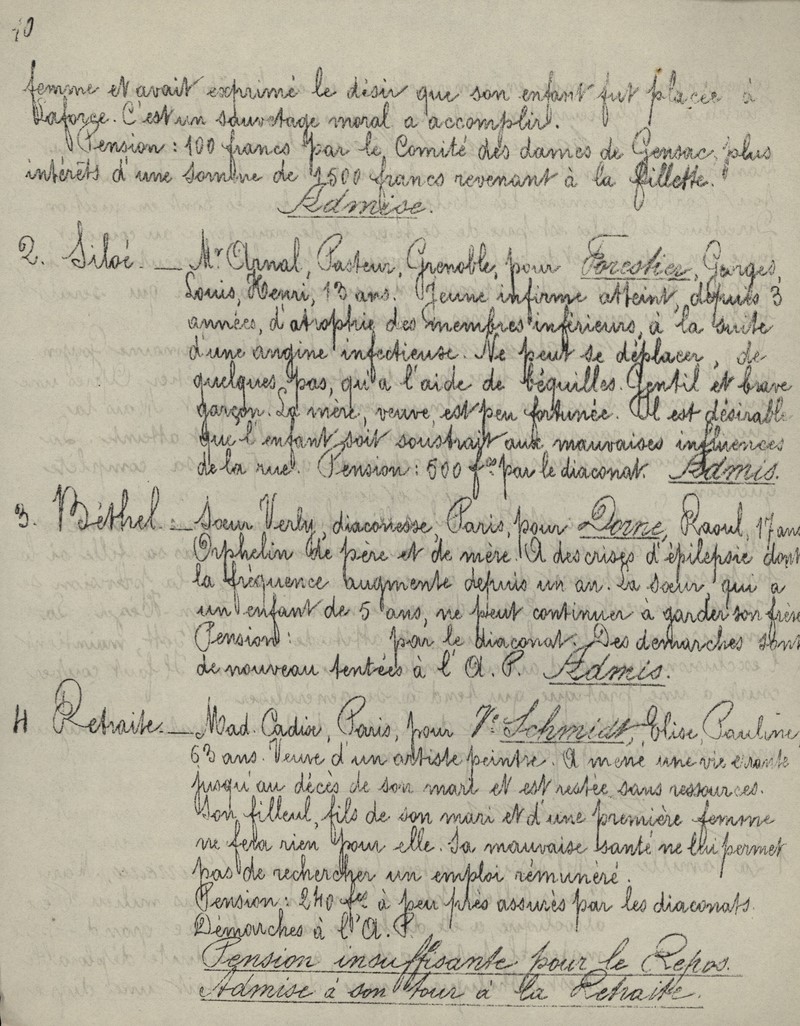 10
femme et avait exprimé le désir que son enfant fut placée à
Laforce. C'est un sauvetage moral a accomplir.
Pension : 100 francs par le Comité des dames de Gensac, plus
intérêts d'une somme de 1500 francs revenant à la fillette.
Admise.
2. Siloé. — Mr Arnal, Pasteur, Grenoble, pour Forestier, Georges,
Louis, Henri, 13 ans. Jeune infirme atteint, depuis 3
années, d'atrophie des membres inférieurs, à la suite
d'une angine infectieuse. Ne peut se déplacer, de
quelques pas, qu'a l'aide de béquilles. Gentil et brave
garçon. La mère, veuve, est peu fortunée. Il est désirable
que l'enfant soit soustrait aux mauvaises influences
de la rue. Pension : 500 fcs par le diaconat. Admis.
3. Béthel. — Sœur Verly, diaconesse, Paris, pour Dorne, Raoul, 17 ans
Orphelin de père et de mère. A des crises d'épilepsie dont
la fréquence augmente depuis un an. La sœur, qui a
un enfant de 5 ans, ne peut continuer a garder son frère
Pension : par le diaconat. Des demarches sont
de nouveau tentées à l'A. P. Admis.
4 Retraite. — Mad. Cadix, Paris, pour Ve Schmidt, Elise, Pauline,
63 ans. Veuve d'un artiste peintre. A mené une vie errante
jusqu'au décès de son mari et est restée sans ressources.
Son filleul, fils de son mari et d'une première femme
ne fera rien pour elle. Sa mauvaise santé ne lui permet
pas de rechercher un emploi rémunéré.
Pension : 240 fcs à peu près assurés par les diaconats.
Démarches à l'A. P.
Pension insuffisante pour le Repos.
Admise à son tour à la Retraite.